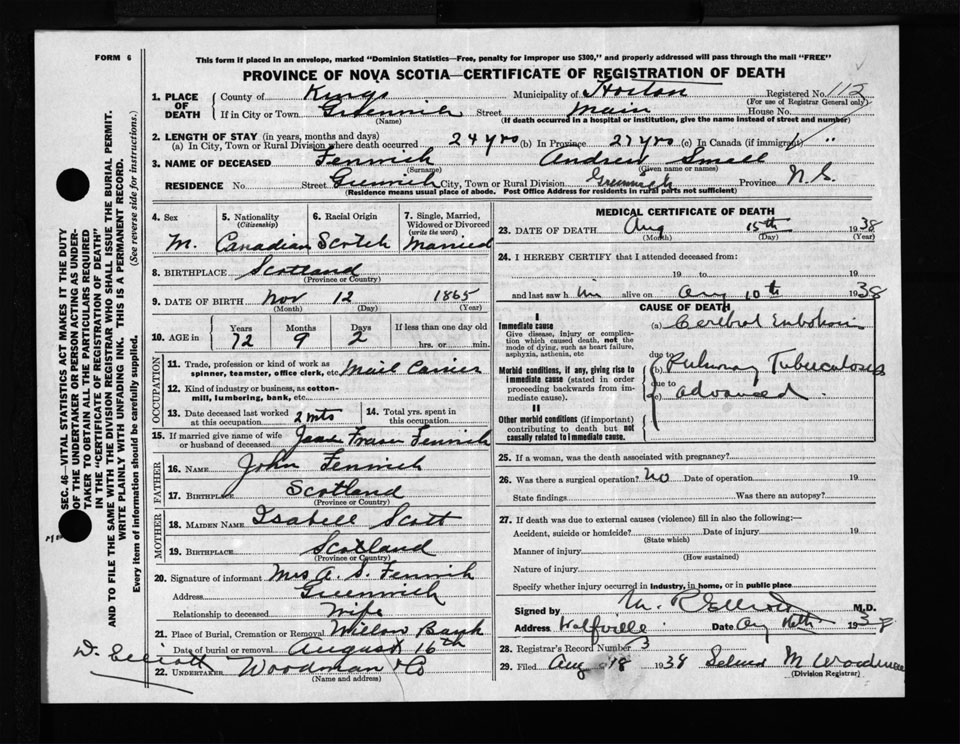 FORM 6
This form if placed in an envelope, marked "Dominion Statistics—Free, penalty for improper use $300," and properly addressed will pass through the mail "FREE"
PROVINCE OF NOVA SCOTIA—CERTIFICATE OF REGISTRATION OF DEATH
1. PLACE OF DEATH County of Kings Municipality of Horton Registered No.
(For use of Registrar General only)
If in City or Town Greenwich Street Main House No.
(Name) (If death occurred in a hospital or institution, give the name instead of street and number)
2. LENGTH OF STAY (in years, months and days)
(a) In City, Town or Rural Division where death occurred 24 yrs (b) In Province 27 yrs (c) In Canada (if immigrant) "
3. NAME OF DECEASED Fenwick Andrew Small
(Surname) (Given name or names)
RESIDENCE No. Street Greenwich City, Town or Rural Division Greenwich Province N.S.
(Residence means usual place of abode. Post Office Address for residents in rural parts not sufficient)
4. Sex M.
5. Nationality (Citizenship) Canadian
6. Racial Origin Scotch
7. Single, Married, Widowed or Divorced (write the word) Married
8. BIRTHPLACE Scotland
(Province or Country)
9. DATE OF BIRTH Nov 12 1865
(Month) (Day) (Year)
10. AGE in Years 72 Months 9 Days 2 If less than one day old hrs. or min.
OCCUPATION
11. Trade, profession or kind of work as spinner, teamster, office clerk, etc. Mail Carrier
12. Kind of industry or business, as cotton-mill, lumbering, bank, etc.
13. Date deceased last worked at this occupation 2 mts
14. Total yrs. spent in this occupation
15. If married give name of wife or husband of deceased Fraser Fenwick
FATHER
16. NAME John Fenwick
17. BIRTHPLACE Scotland
(Province or Country)
MOTHER
18. MAIDEN NAME Isabell Scott
19. BIRTHPLACE Scotland
(Province or Country)
20. Signature of informant Mrs A. S. Fenwick
Address Greenwich
Relationship to deceased Wife
21. Place of Burial, Cremation or Removal Willow Bank
Date of burial or removal August 16th
22. UNDERTAKER Woodman & Co
(Name and address)
D. Elliott
MEDICAL CERTIFICATE OF DEATH
23. DATE OF DEATH Aug 15th 1938
(Month) (Day) (Year)
24. I HEREBY CERTIFY that I attended deceased from:
19 to 19
and last saw him alive on Aug 10th 1938
CAUSE OF DEATH
I
Immediate cause
Give disease, injury or complication which caused death, not the mode of dying, such as heart failure, asphyxia, asthenia, etc
(a) Cerebral Embolism
due to
Morbid conditions, if any, giving rise to immediate cause (stated in order proceeding backwards from immediate cause).
(b) Pulmonary Tuberculosis
due to
(c) advanced.
II
Other morbid conditions (if important) contributing to death but not causally related to immediate cause.
25. If a woman, was the death associated with pregnancy?
26. Was there a surgical operation? No Date of operation 19
State findings Was there an autopsy?
27. If death was due to external causes (violence) fill in also the following:—
Accident, suicide or homicide? Date of injury 19
(State which)
Manner of injury
(How sustained)
Nature of injury
Specify whether injury occurred in industry, in home, or in public place
Signed by M. R. Elliott M.D.
Address Wolfville Date Aug 1938
28. Registrar's Record Number 3
29. Filed Aug 18 1938 M Woodman
(Division Registrar)
SEC. 46—VITAL STATISTICS ACT MAKES IT THE DUTY
OF THE UNDERTAKER OR PERSON ACTING AS UNDER-
TAKER TO OBTAIN ALL THE PARTICULARS REQUIRED
IN THE "CERTIFICATE OF REGISTRATION OF DEATH"
AND TO FILE THE SAME WITH THE DIVISION REGISTRAR WHO SHALL ISSUE THE BURIAL PERMIT.
WRITE PLAINLY WITH UNFADING INK. THIS IS A PERMANENT RECORD.
Every item of information should be carefully supplied. (See reverse side for instructions.)